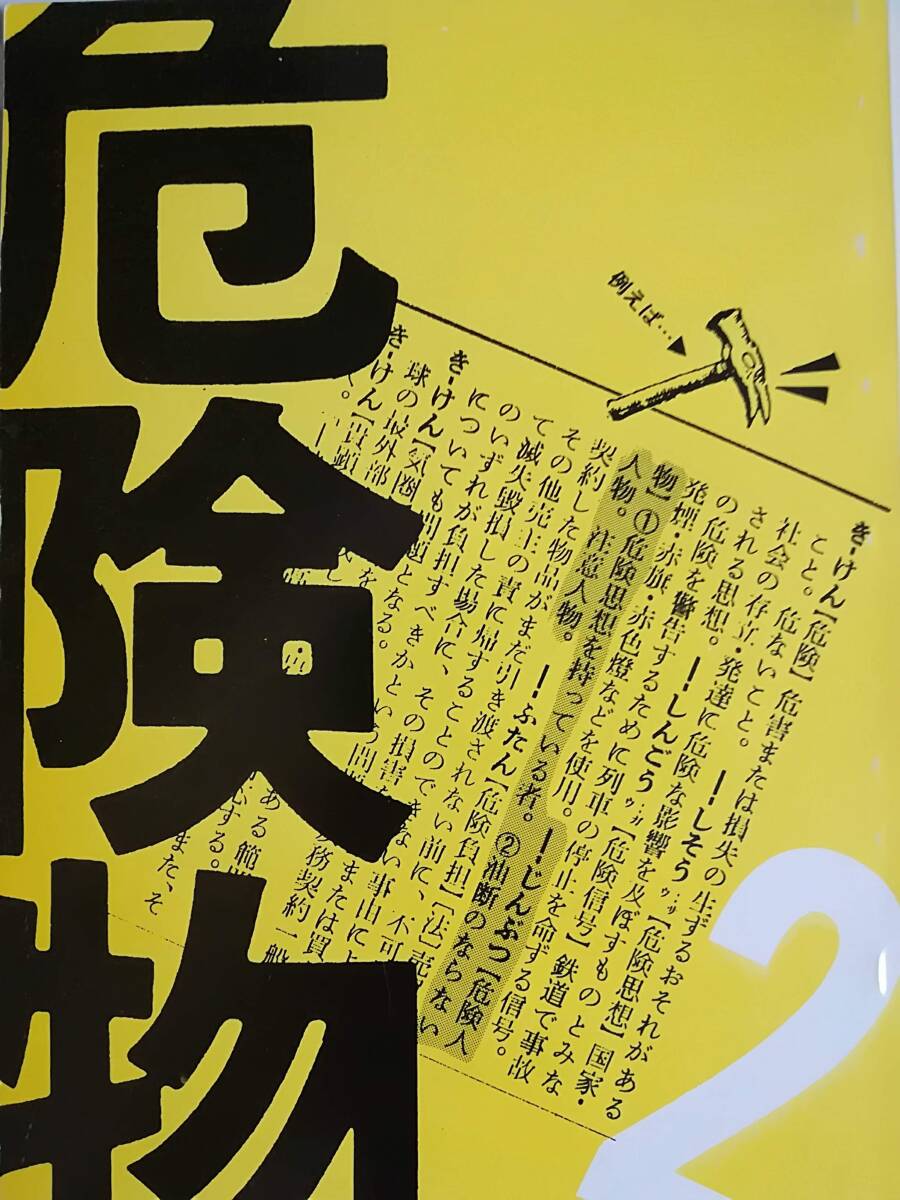 危険物
例えば…
き‐けん【危険】危害または損失の生ずるおそれがある
こと。危ないこと。―‐しそう‥サウ【危険思想】国家・
社会の存立・発達に危険な影響を及ぼすものとみな
される思想。―‐しんごう‥ガウ【危険信号】鉄道で事故
の危険を警告するために列車の停止を命ずる信号。
発煙・赤旗・赤色燈などを使用。―‐じんぶつ【危険人
物】①危険思想を持っている者。②油断のならない
人物。注意人物。―‐ふたん【危険負担】〔法〕売
契約した物品がまだ引き渡されない前に、不可
その他売主の責に帰することのできない事由に
て滅失毀損した場合に、その損害
のいずれが負担すべきかという問 または買
についても問題となる。 務契約一般
き‐けん【気圏】
球の最外部 を
き‐けん【貴顕】
ある範
する。
また、そ
2